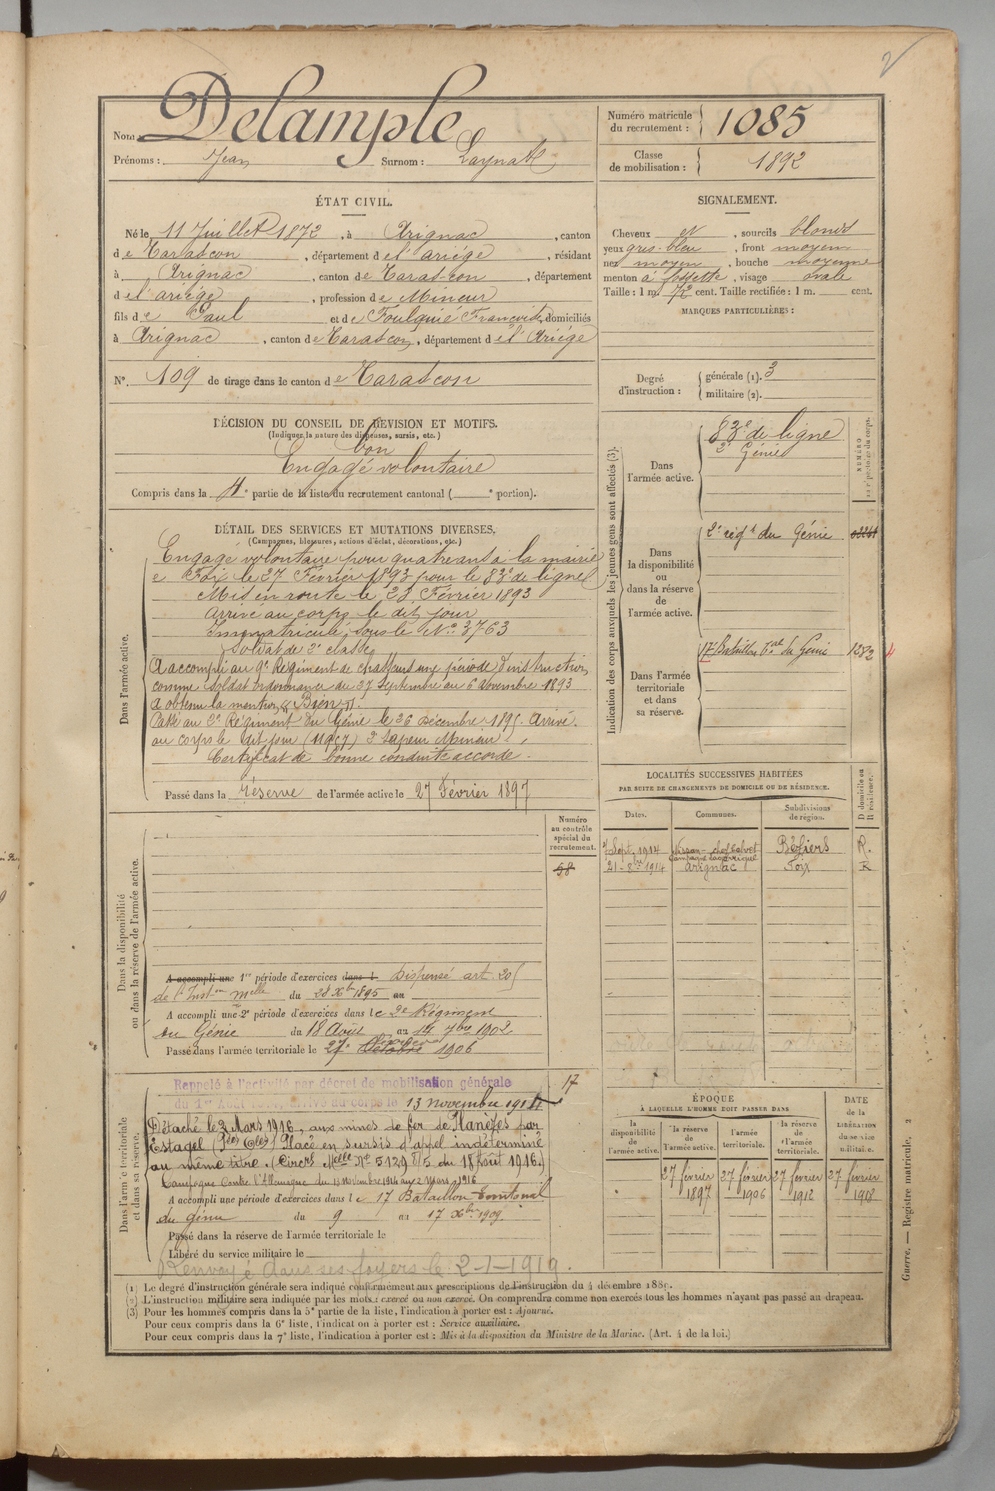 2
Nom : Delample
Prénoms : Jean Surnom : Laynat
Numéro matricule du recrutement : 1085
Classe de mobilisation : 1892
ÉTAT CIVIL.
Né le 11 Juillet 1872, à Arignac, canton
de Tarascon, département de l'ariége, résidant
à Arignac, canton de Tarascon, département
de l'ariége, profession de Mineur
fils de Paul et de Foulquié Francoise, domiciliés
à Arignac, canton de Tarascon, département de l'Ariége
N° 109 de tirage dans le canton de Tarascon
SIGNALEMENT.
Cheveux et, sourcils blonds
yeux gris-bleu, front moyen
nez moyen, bouche moyenne
menton à fossette, visage ovale
Taille : 1 m. 72 cent. Taille rectifiée : 1 m. cent.
MARQUES PARTICULIÈRES :
Degré d'instruction : générale (1). 3
militaire (2).
DÉCISION DU CONSEIL DE REVISION ET MOTIFS.
(Indiquer la nature des dispenses, sursis, etc.)
bon
Engagé volontaire
Compris dans la 4e partie de la liste du recrutement cantonal ( e portion).
DÉTAIL DES SERVICES ET MUTATIONS DIVERSES.
(Campagnes, blessures, actions d'éclat, décorations, etc.)
Dans l'armée active.
Engagé volontaire pour quatre ans à la mairie
e Foix le 27 Février 1893 pour le 83e de ligne
Mis en route le 23 Février 1893
arrivé au corps le dit jour
Immatriculé sous le N° 3763
Soldat de 2e classe
A accompli au 9e Régiment de chasseurs une période d'instruction
comme soldat ordonnance du 27 Septembre au 6 Novembre 1893
A obtenu la mention « Bien ».
Passé au 2e Régiment du Génie le 26 Décembre 1895. Arrivé
au corps le dit jour 2e Sapeur Mineur
Certificat de bonne conduite accordé.
Passé dans la réserve de l'armée active le 27 Février 1897
Dans la disponibilité ou dans la réserve de l'armée active.
Numéro au contrôle spécial du recrutement.
58
A accompli une 1re période d'exercices dans l Dispensé art. 20
de l'Inston Melle du 28 Xbre 1895 au
A accompli une 2e période d'exercices dans le 2e Régiment
du Génie du 18 Août au 14 7bre 1902
Passé dans l'armée territoriale le 27 Octobre 1906
Dans l'armée territoriale et dans sa réserve.
Rappelé à l'activité par décret de mobilisation générale 17
du 1er Août 1914, arrivé au corps le 13 novembre 1914
Détaché le 2 Mars 1916, aux mines de fer de Planèzes par
Estagel (Pées Oles) Placé en sursis d'appel indéterminé
au même titre. (Circre Melle N° 5129 5 du 18 Août 1916.)
Campagne Contre l'Allemagne du 13 Novembre 1914 au 2 Mars 1916
A accompli une période d'exercices dans le 17 Bataillon Territorial
du génie du 9 au 17 Xbre 1909
Passé dans la réserve de l'armée territoriale le
Libéré du service militaire le
Renvoyé dans ses foyers le 2-1-1919.
Indication des corps auxquels les jeunes gens sont affectés (3).
NUMÉRO au répertoire du corps.
Dans l'armée active.
83e de ligne
2e Génie
Dans la disponibilité ou dans la réserve de l'armée active.
2e régt du Génie
Dans l'armée territoriale et dans sa réserve.
17e Bataillon Torial du Génie 1582
LOCALITÉS SUCCESSIVES HABITÉES
PAR SUITE DE CHANGEMENTS DE DOMICILE OU DE RÉSIDENCE.
Dates. Communes. Subdivisions de région. D domicile ou R résidence.
7 Sept. 1914 Béziers R.
21-8bre 1914 arignac Foix R
ÉPOQUE
À LAQUELLE L'HOMME DOIT PASSER DANS
la disponibilité de l'armée active. la réserve de l'armée active. l'armée territoriale. la réserve de l'armée territoriale. DATE de la LIBÉRATION du service militaire.
27 février 1897 27 février 1906 27 février 1912 27 février 1918
(1) Le degré d'instruction générale sera indiqué conformément aux prescriptions de l'instruction du 4 décembre 1889.
(2) L'instruction militaire sera indiquée par les mots : exercé ou non exercé. On comprendra comme non exercés tous les hommes n'ayant pas passé au drapeau.
(3) Pour les hommes compris dans la 5e partie de la liste, l'indication à porter est : Ajourné.
Pour ceux compris dans la 6e liste, l'indication à porter est : Service auxiliaire.
Pour ceux compris dans la 7e liste, l'indication à porter est : Mis à la disposition du Ministre de la Marine. (Art. 4 de la loi.)
Guerre. — Registre matricule. 2